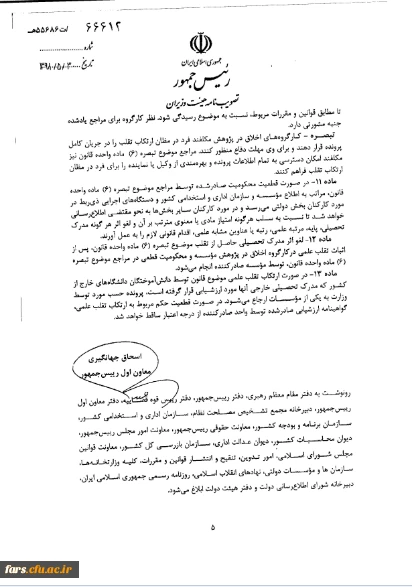 ۶۶۶۱۲ /ت۵۵۶۸۶هـ
شماره
تاریخ ۱۳۹۸/۰۵/۰۳
جمهوری اسلامی ایران
رئیس جمهور
تصویب نامه هیئت وزیران
تا مطابق قوانین و مقررات مربوط، نسبت به موضوع رسیدگی شود. نظر کارگروه برای مراجع یادشده
جنبه مشورتی دارد.
تبصره – کارگروه‌های اخلاق در پژوهش مکلفند فرد در مظان ارتکاب تقلب را در جریان کامل
پرونده قرار دهند و برای وی مهلت دفاع منظور کنند. مراجع موضوع تبصره (۶) ماده واحده قانون نیز
مکلفند امکان دسترسی به تمام اطلاعات پرونده و بهره‌مندی از وکیل یا نماینده را برای فرد در مظان
ارتکاب تقلب فراهم کنند.
ماده ۱۱– در صورت قطعیت محکومیت صادرشده توسط مراجع موضوع تبصره (۶) ماده واحده
قانون، مراتب به اطلاع مؤسسه و سازمان اداری و استخدامی کشور و دستگاه‌های اجرایی ذی‌ربط در
مورد کارکنان بخش دولتی می‌رسد و در مورد کارکنان سایر بخش‌ها به نحو مقتضی اطلاع‌رسانی
خواهد شد تا نسبت به سلب هرگونه امتیاز مادی یا معنوی مترتب بر آن و لغو اثر هر گونه مدرک
تحصیلی، پایه، مرتبه علمی، رتبه یا عناوین مشابه علمی، اقدام قانونی لازم را به عمل آورند.
ماده ۱۲– لغو اثر مدرک تحصیلی حاصل از تقلب موضوع تبصره (۶) ماده واحده قانون، پس از
اثبات تقلب علمی درکارگروه اخلاق در پژوهش مؤسسه و محکومیت قطعی در مراجع موضوع تبصره
(۶) ماده واحده قانون، توسط مؤسسه صادرکننده انجام می‌شود.
ماده ۱۳– در صورت ارتکاب تقلب علمی موضوع قانون توسط دانش‌آموختگان دانشگاه‌های خارج از
کشور که مدرک تحصیلی خارجی آنها مورد ارزشیابی قرار گرفته است، پرونده حسب مورد توسط
وزارت به یکی از مؤسسات ارجاع می‌شود. در صورت قطعیت حکم مربوط به ارتکاب تقلب علمی،
گواهینامه ارزشیابی صادرشده توسط واحد صادرکننده از درجه اعتبار ساقط خواهد شد.
اسحاق جهانگیری
معاون اول رییس‌جمهور
رونوشت به دفتر مقام معظم رهبری، دفتر رییس‌جمهور، دفتر رییس قوه قضاییه، دفتر معاون اول
رییس‌جمهور، دبیرخانه مجمع تشخیص مصلحت نظام، سازمان اداری و استخدامی کشور،
سازمان برنامه و بودجه کشور، معاونت حقوقی رییس‌جمهور، معاونت امور مجلس رییس‌جمهور،
دیوان محاسبات کشور، دیوان عدالت اداری، سازمان بازرسی کل کشور، معاونت قوانین
مجلس شورای اسلامی، امور تدوین، تنقیح و انتشار قوانین و مقررات، کلیه وزارتخانه‌ها،
سازمان ها و مؤسسات دولتی، نهادهای انقلاب اسلامی، روزنامه رسمی جمهوری اسلامی ایران،
دبیرخانه شورای اطلاع‌رسانی دولت و دفتر هیئت دولت ابلاغ می‌شود.
۵
fars.cfu.ac.ir